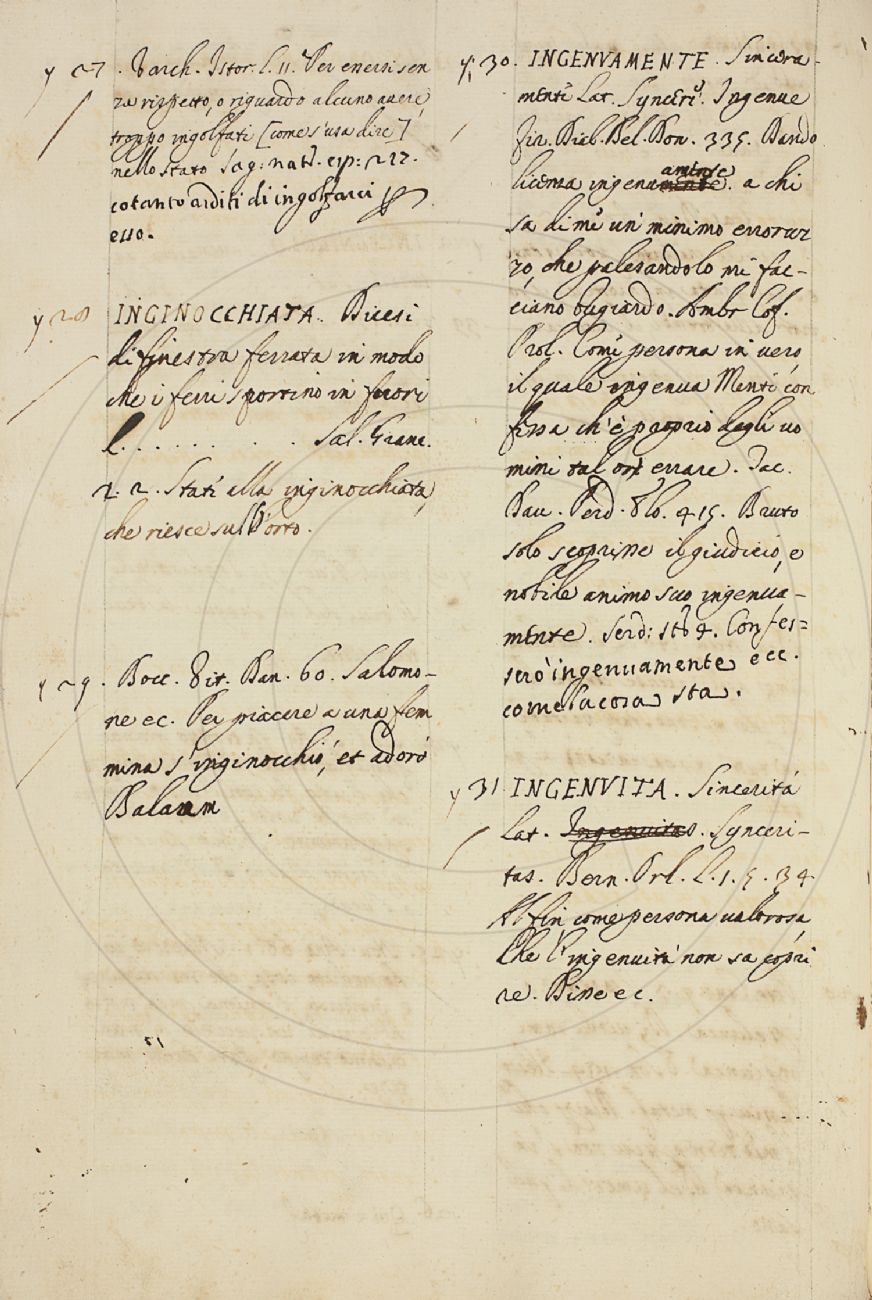 y 27. Varch. Istor. l. 11. Per enersi sen
za rispetto, o riguardo alcuno avere
troppo ingolfati [come s'usa dire]
nello stato Sag: nat. esp: 227.
cotanto arditi di ingolfarci
esso.
y 28 INGINOCCHIATA. Dicesi
di finestra ferrata in modo
che i ferri sportino in fuori
L. . . . . . . . . Sal. Granc.
2. 2. Stati alla inginocchiata,
che riesce sull'orto.
y 29. Bocc. Vit. Dan. 60. Salomo-
ne ec. Per piacere a una fem
mina s'inginocchiò, et adorò
Balaam
y 30. INGENVAMENTE. Sincera-
mente Lat. Syncere. Ingenue
Fir. Dial. Bel. Don. 335. Dando
licenza ingenuaminse. a chi
sa di me un minimo erroruz
zo, che palesandolo mi fac-
ciano bugiardo. Ambr. Cof.
Prol. Come persona in vero
il quale ingenua Mente con
fessa ch'è proprio degli uo
mini tal or errare. Iac.
Dav. Perd. Elo. 415. Bruto
solo scoprisse il giudicio, e
nobile animo suo ingenua-
mente. Serd: sto 4. Confes=
serò ingenuamente ecc.
come la cosa sta.
y 31 INGENVITA. Sincerità
Lat. Ingenuitas. Synceri-
tas. Bern. Orl. L. 1. 5. 34
Al fin come persona valorosa
Che l'ingenuità non sa copri
re. Disse ec.